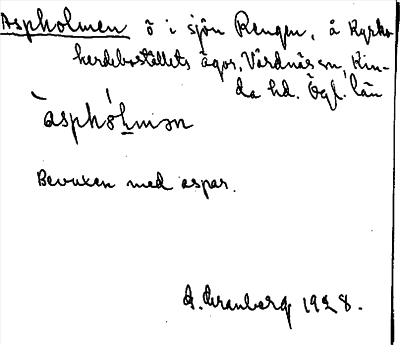 Aspholmen ö i sjön Rengen, å Kyrko-
herdebostället ägor, Vårdnäs sn, Kin-
da hd. Ögl. län
àsphólmən
Bevuxen med aspar.
A. Granberg 1928.